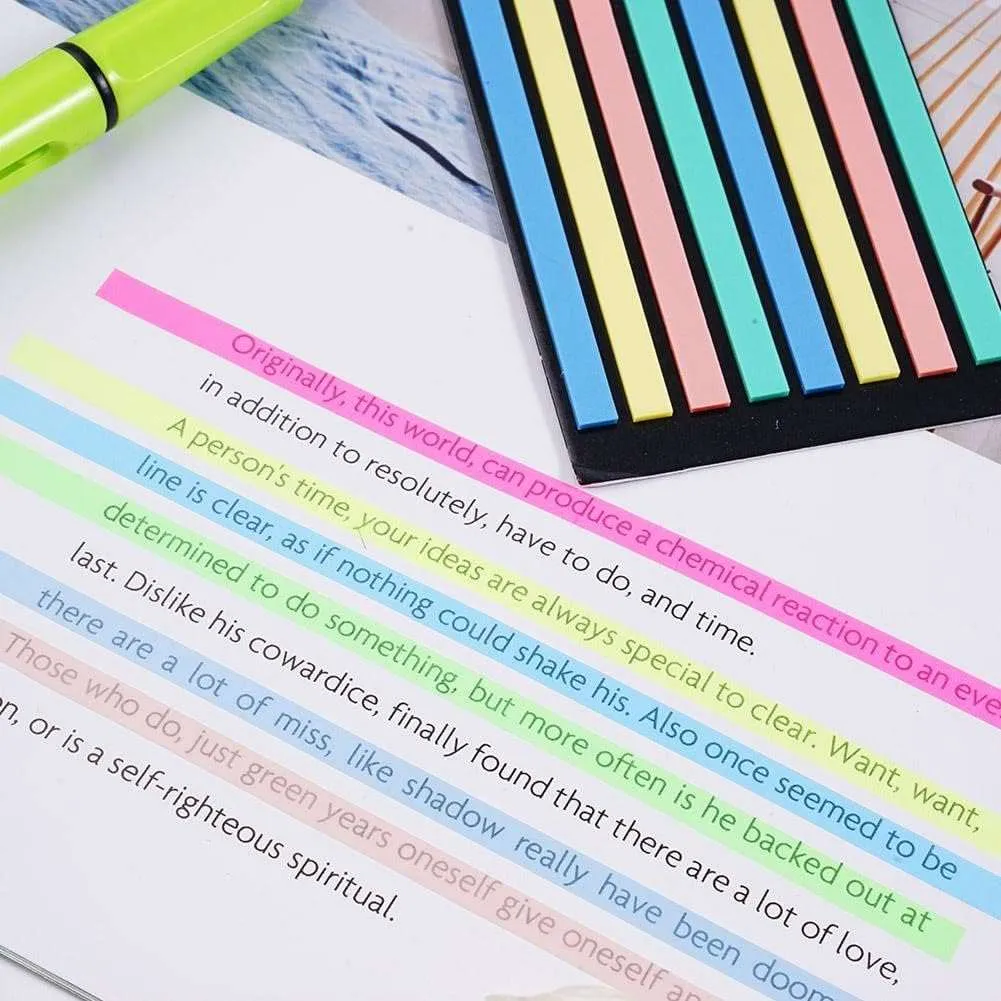 Originally, this world, can produce a chemical reaction to an
in addition to resolutely, have to do, and time.
A person's time, your ideas are always special to clear. Want, want,
line is clear, as if nothing could shake his. Also once seemed to be
determined to do something, but more often is he backed out at
last. Dislike his cowardice, finally found that there are a lot of love,
there are a lot of miss, like shadow really have been
Those who do, just green years oneself give oneself
or is a self-righteous spiritual.